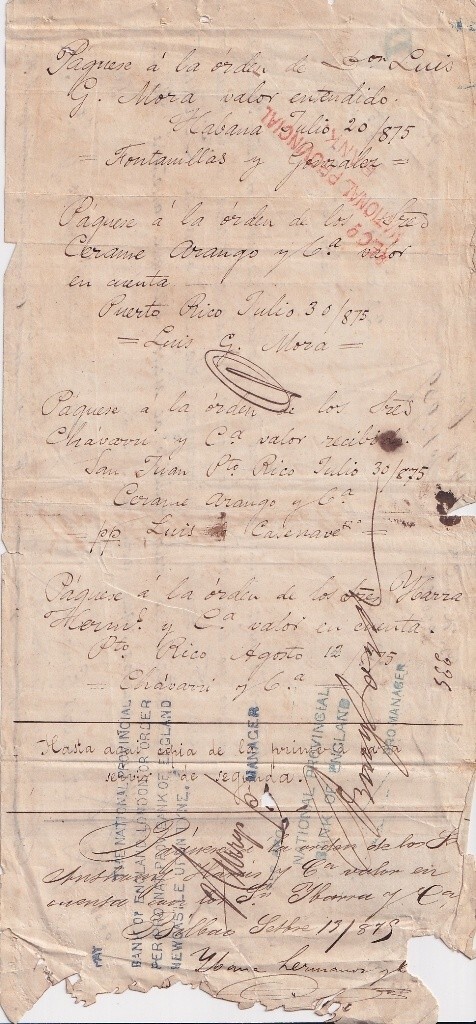 Páguese á la órden de Don Luis
G. Mora valor entendido.
Habana Julio 20/875
= Fontanillas y González =
REC'D
NATIONAL PROVINCIAL
BANK
Páguese á la órden de los Sres
Cerame Arango y Cª valor
en cuenta
Puerto Rico Julio 30/875
= Luis G. Mora =
Páguese á la órden de los Sres
Chávarri y Cª valor recibido
San Juan Pto Rico Julio 30/875
Cerame Arango y Cª
pp. Luis Casenave
Páguese á la órden de los Sres Ybarra
Hermˢ y Cª valor en cuenta.
Pto. Rico Agosto 12 75
= Chávarri y Cª
996
Hasta aqui copia de la primera para
servir de segunda.
Páguese a la orden de los Sr
y Cª valor en
cuenta con los Sr Ybarra y Cª
Bilbao Setbre 13/875
Ybarra hermanos y Cª
PAY
THE NATIONAL PROVINCIAL
BANK OF ENGLAND LONDON OR ORDER
PER PRO NAT. PROV. BANK OF ENGLAND
NEWCASTLE UPON TYNE.
MANAGER
NATIONAL PROVINCIAL
BANK OF ENGLAND
PRO MANAGER